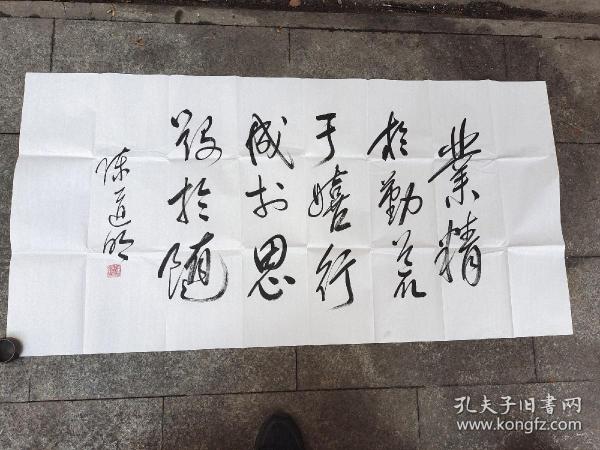 業精
於勤荒
于嬉行
成於思
毁於随
陈道明
孔夫子旧書网
www.kongfz.com